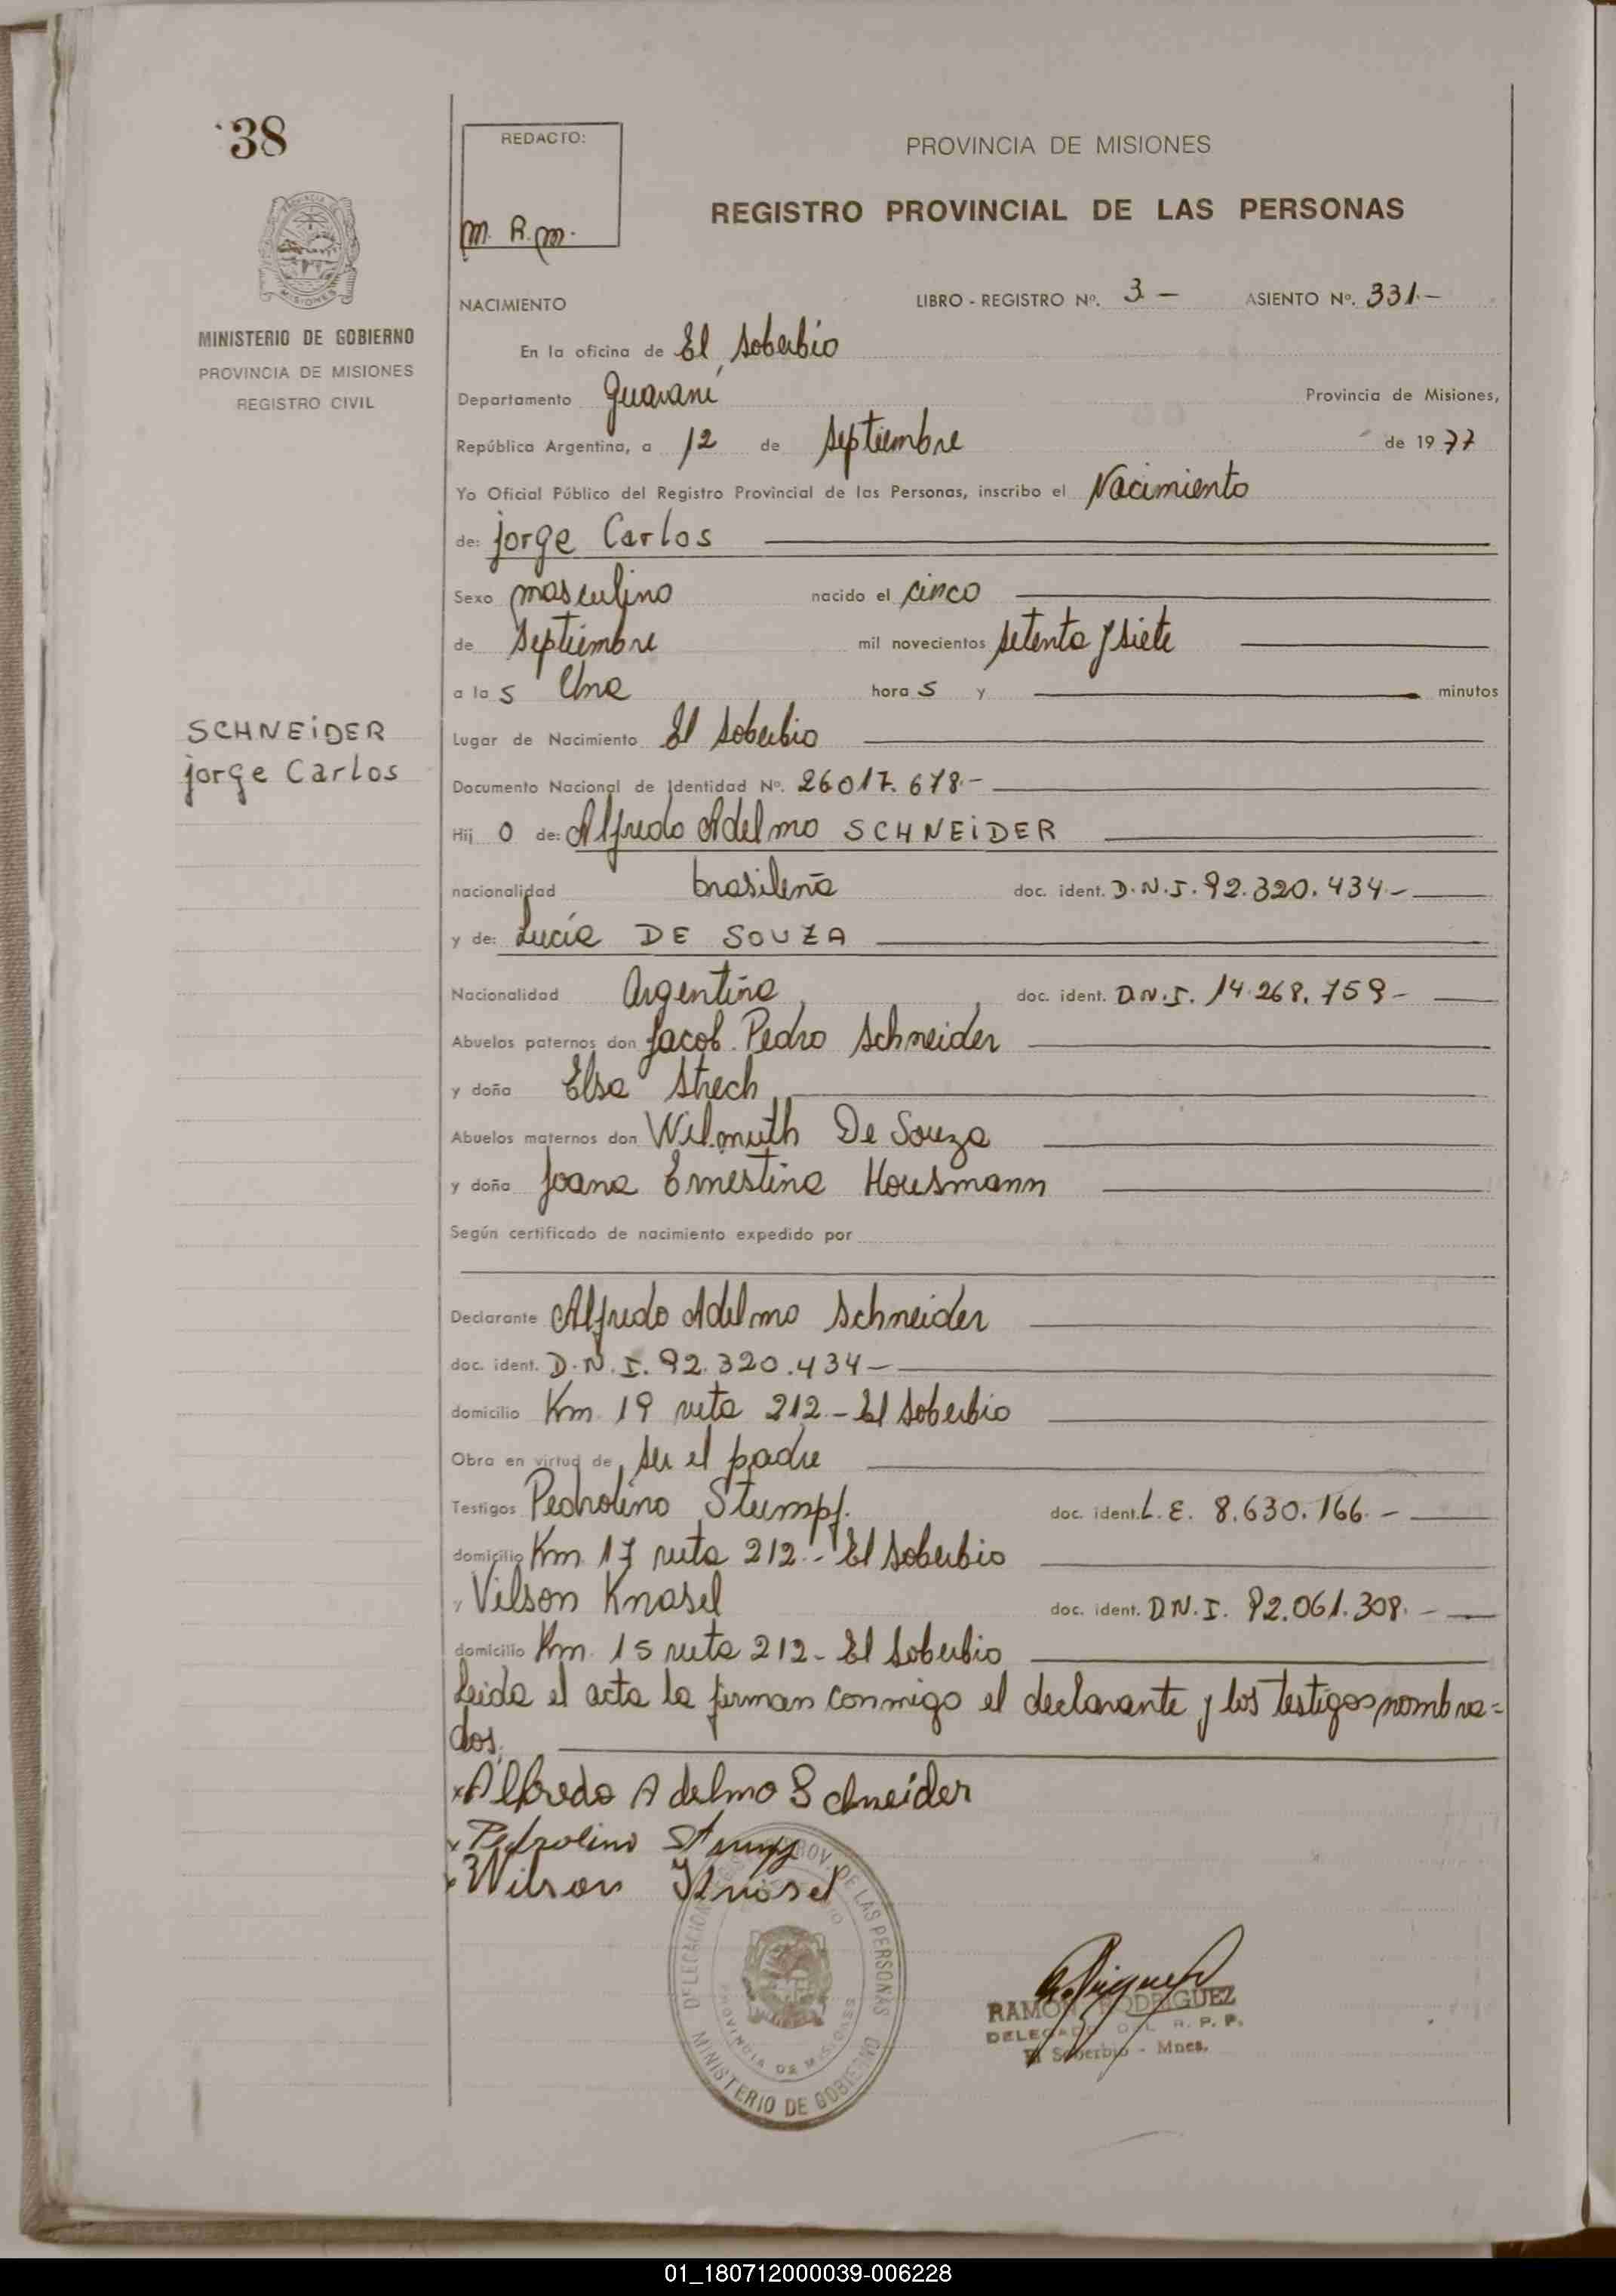 38
REDACTO:
M. R. M.
PROVINCIA DE MISIONES
REGISTRO PROVINCIAL DE LAS PERSONAS
MINISTERIO DE GOBIERNO
PROVINCIA DE MISIONES
REGISTRO CIVIL
NACIMIENTO LIBRO - REGISTRO Nº. 3 - ASIENTO Nº. 331.-
En la oficina de El Soberbio
Departamento Guaraní Provincia de Misiones,
República Argentina, a 12 de Septiembre de 1977
Yo Oficial Público del Registro Provincial de las Personas, inscribo el Nacimiento
de: Jorge Carlos
Sexo masculino nacido el cinco
de Septiembre mil novecientos setenta y siete
a la s Una hora s y minutos
SCHNEiDER
Jorge Carlos
Lugar de Nacimiento El Soberbio
Documento Nacional de Identidad Nº. 26.017.678.-
Hij o de: Alfredo Adelmo SCHNEiDER
nacionalidad brasileña doc. ident. D.N.I. 92.320.434.-
y de: Lucía DE SOUZA
Nacionalidad Argentina doc. ident. D.N.I. 14.268.759-
Abuelos paternos don Jacob Pedro Schneider
y doña Elsa Strech
Abuelos maternos don Wilmuth De Souza
y doña Joana Ernestina Housmann
Según certificado de nacimiento expedido por
Declarante Alfredo Adelmo Schneider
doc. ident. D.N.I. 92.320.434-
domicilio Km 19 ruta 212.- El Soberbio
Obra en virtud de ser el padre
Testigos Pedrolino Stumpf. doc. ident. L.E. 8.630.166.-
domicilio Km 17 ruta 212.- El Soberbio
y Vilson Knasel doc. ident. D.N.I. 92.061.308.-
domicilio Km. 15 ruta 212- El Soberbio
Leida el acta la firman conmigo el declarante y los testigos nombra=
dos.
x Alfredo Adelmo Schneider
x Pedrolino
x Wilson Knasel
DELEGACION PROV. DE LAS PERSONAS
PROVINCIA DE MISIONES
MINISTERIO DE GOBIERNO
RAMON RODRIGUEZ
DELEGADO DEL R. P. P.
El Soberbio - Mnes.
01_180712000039-006228